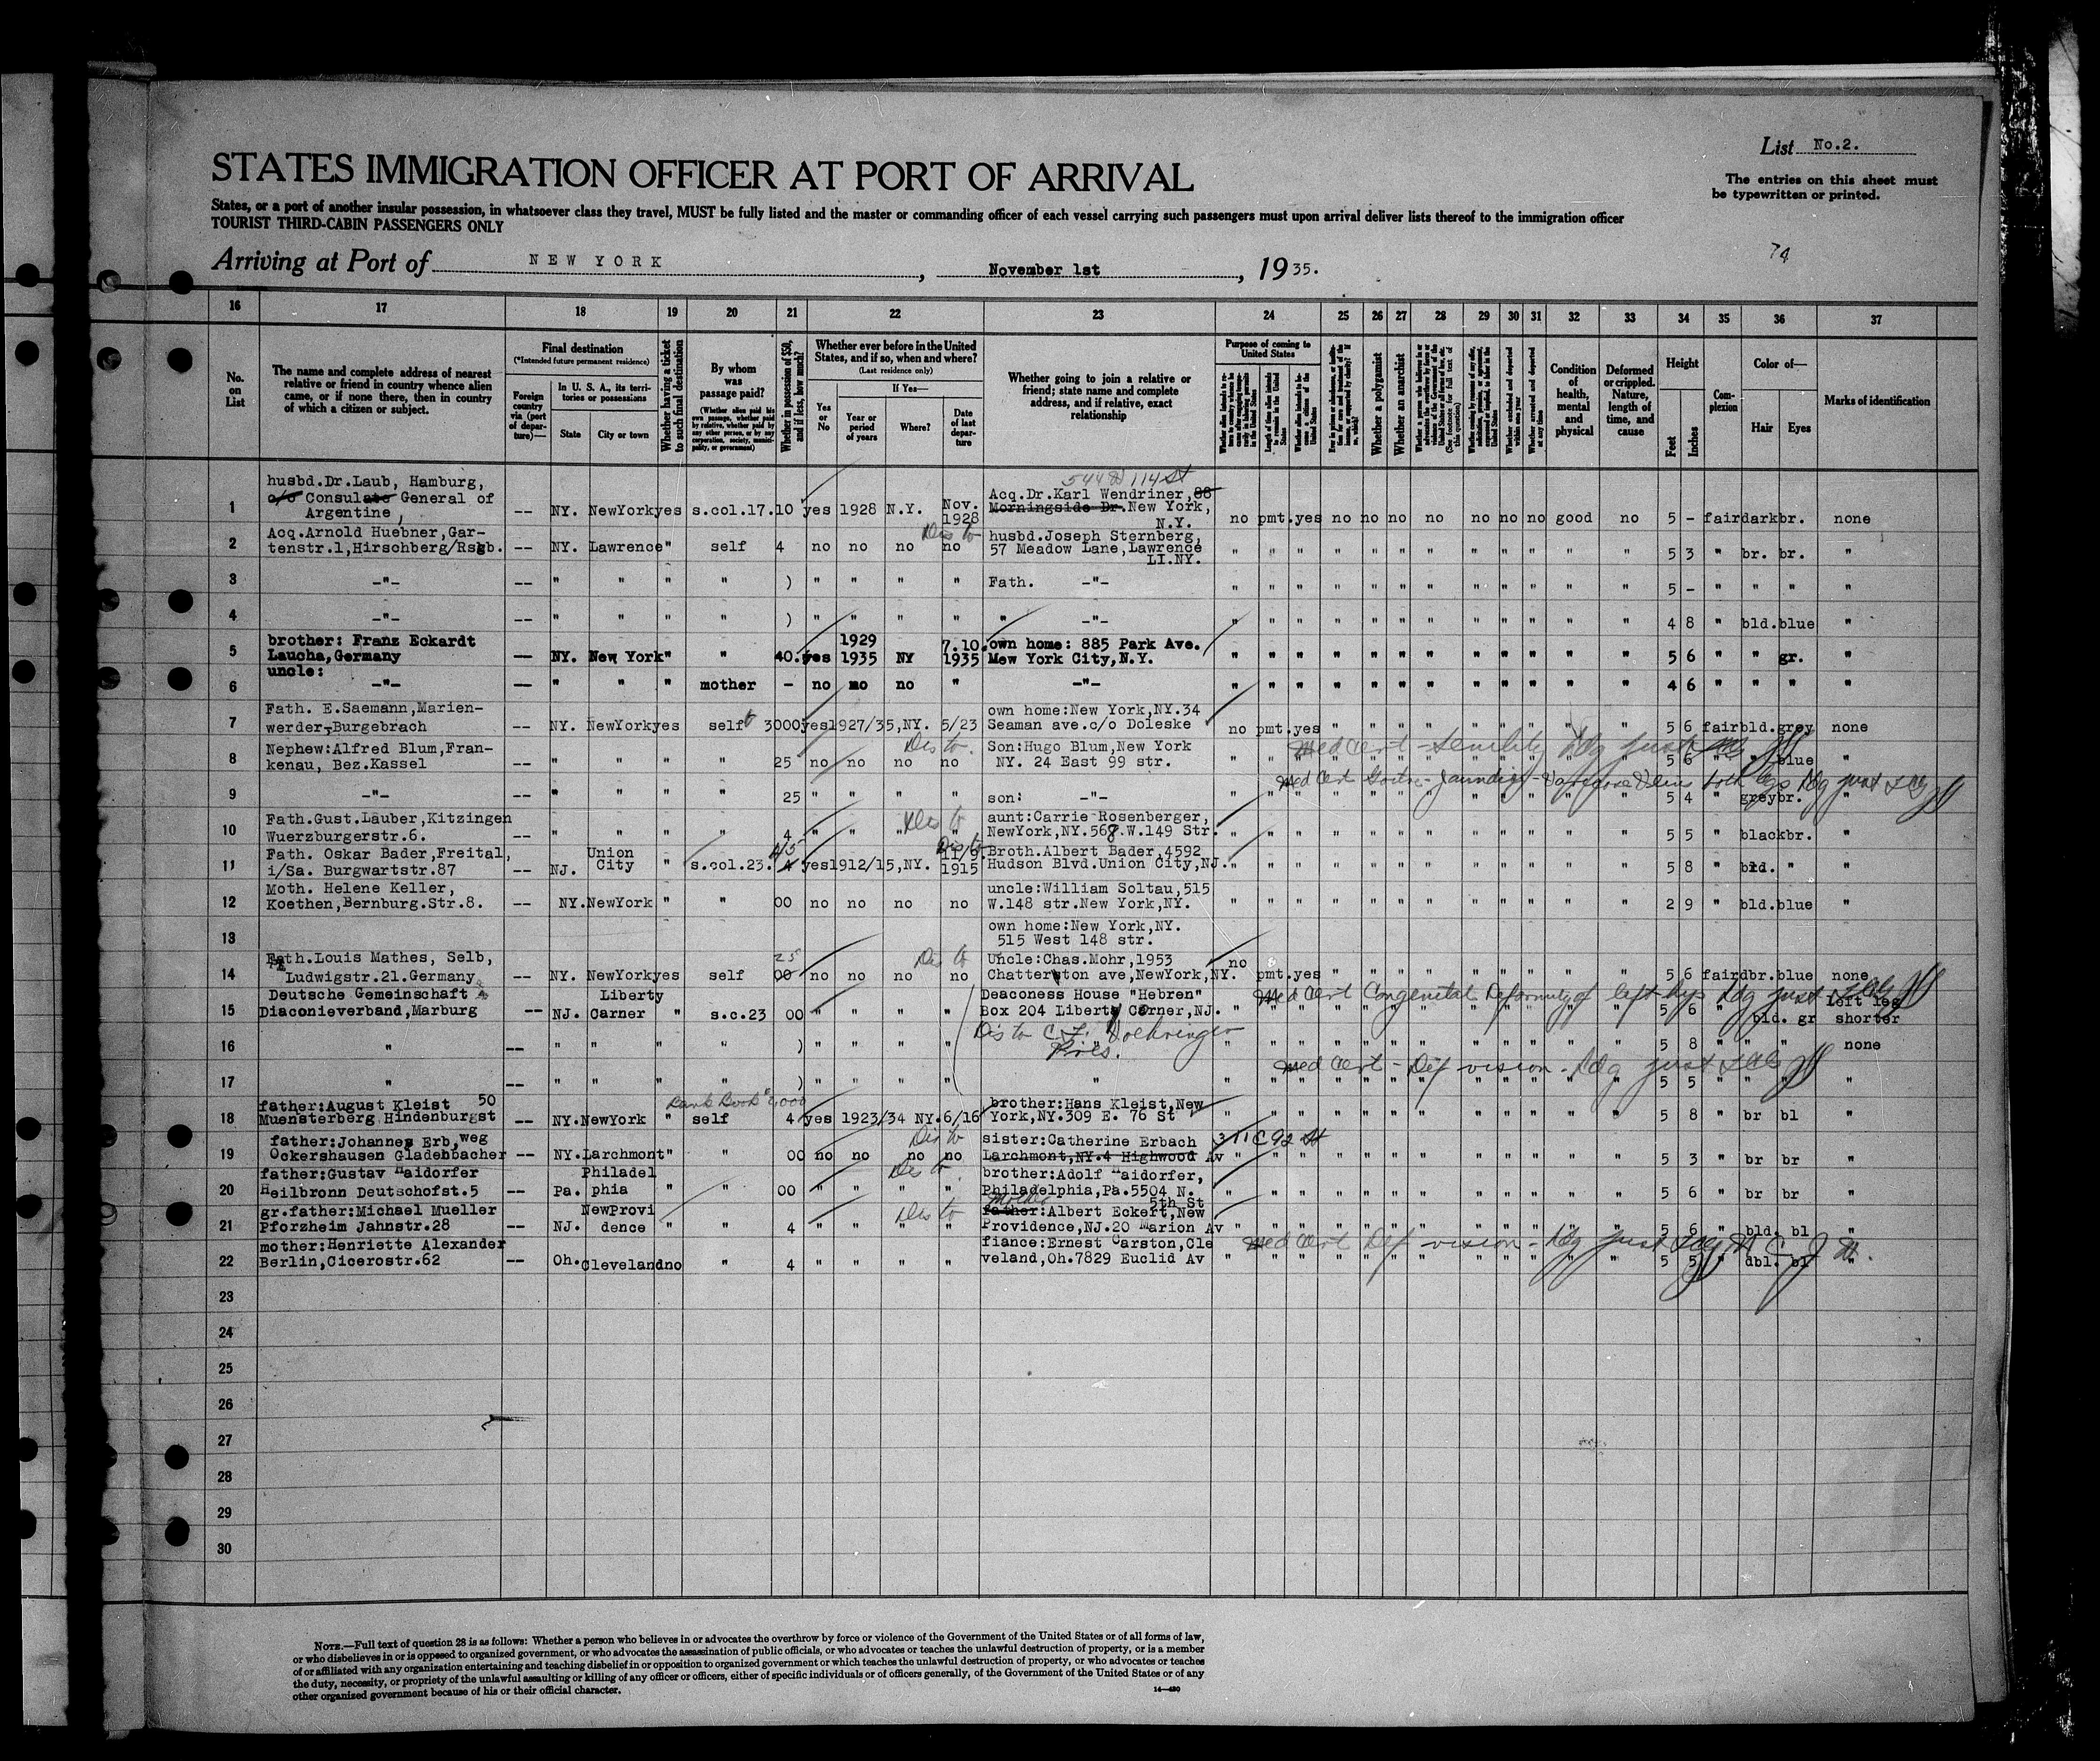 List No.2.
STATES IMMIGRATION OFFICER AT PORT OF ARRIVAL
The entries on this sheet must
be typewritten or printed.
States, or a port of another insular possession, in whatsoever class they travel, MUST be fully listed and the master or commanding officer of each vessel carrying such passengers must upon arrival deliver lists thereof to the immigration officer
TOURIST THIRD-CABIN PASSENGERS ONLY
74
Arriving at Port of NEW YORK, November 1st, 1935.
16 17 18 19 20 21 22 23 24 25 26 27 28 29 30 31 32 33 34 35 36 37
No. on List
The name and complete address of nearest
relative or friend in country whence alien
came, or if none there, then in country
of which a citizen or subject.
Final destination
(*Intended future permanent residence)
Foreign country via (port of departure)—
In U. S. A., its territories or possessions
State
City or town
Whether having a ticket to such final destination
By whom was passage paid?
(Whether alien paid his own passage, whether paid by relative, whether paid by any other person, or by any corporation, society, municipality, or government)
Whether in possession of $50, and if less, how much?
Whether ever before in the United
States, and if so, when and where?
(Last residence only)
Yes or No
If Yes—
Year or period of years
Where?
Date of last departure
Whether going to join a relative or
friend; state name and complete
address, and if relative, exact
relationship
Purpose of coming to United States
Whether a polygamist
Whether an anarchist
Whether arrested and deported at any time
Condition of health, mental and physical
Deformed or crippled. Nature, length of time, and cause
Height
Feet
Inches
Complexion
Color of—
Hair
Eyes
Marks of identification
544 W 114 St
husbd.Dr.Laub, Hamburg,
c/o Consulate General of
Argentine,
1 -- NY. NewYork yes s.col.17. 10 yes 1928 N.Y. Nov. 1928
Acq.Dr.Karl Wendriner,88
Morningside Dr.New York,
N.Y.
no pmt. yes no no no no no no no good no 5 - fair dark br. none
Acq.Arnold Huebner,Gar-
2 tenstr.1,Hirschberg/Rsgb. -- NY. Lawrence " self 4 no no no no
Dis to
husbd.Joseph Sternberg,
57 Meadow Lane,Lawrence
LI.NY.
" " " " " " " " " " " " 5 3 " br. br. "
3 -"- -- " " " " ) " " " " Fath. -"- " " " " " " " " " " " " 5 - " " " "
4 -"- -- " " " " ) " " " " " -"- " " " " " " " " " " " " 4 8 " bld. blue "
brother: Franz Eckardt
5 Laucha,Germany — NY. New York " " 40. yes 1929 1935 NY 7.10. 1935
own home: 885 Park Ave.
New York City,N.Y.
" " " " " " " " " " " " 5 6 " " gr. "
uncle:
6 -"- — " " " mother - no no no " -"- " " " " " " " " " " " " 4 6 " " " "
Fath. E.Saemann,Marien-
7 werder,Burgebrach -- NY. NewYork yes self 3000 yes 1927/35,NY. 5/23
own home:New York,NY.34
Seaman ave.c/o Doleske
no pmt. yes " " " " " " " " " 5 6 fair bld. grey none
Nephew:Alfred Blum,Fran-
8 kenau, Bez.Kassel -- " " " " 25 no no no no
Dis to.
Son:Hugo Blum,New York
NY. 24 East 99 str.
Med Cert - Senility Ldg just
" " " " " " " " " " " " 5 6 " " blue "
9 -"- -- " " " " 25 " " " " son: -"-
Med Cert Goitre - Jaundice - Varicose Veins both legs Ldg just
" " " " " " " " " " " " 5 4 " grey br. "
Fath.Gust.Lauber,Kitzingen
10 Wuerzburgerstr.6. -- " " " " 4 " " " "
Dis to
aunt:Carrie Rosenberger,
NewYork,NY.568.W.149 Str.
" " " " " " " " " " " " 5 5 " black br. "
Fath. Oskar Bader,Freital,
11 i/Sa. Burgwartstr.87 -- NJ. Union City " s.col.23. 4 yes 1912/15,NY. 11/9 1915
Dis to
Broth.Albert Bader,4592
Hudson Blvd.Union City,NJ.
" " " " " " " " " " " " 5 8 " bld. " "
Moth. Helene Keller,
12 Koethen,Bernburg.Str.8. -- NY. NewYork " " 00 no no no no
uncle:William Soltau,515
W.148 str.New York,NY.
" " " " " " " " " " " " 2 9 " bld. blue "
13 own home:New York,NY.
515 West 148 str.
Fath.Louis Mathes, Selb,
14 Ludwigstr.21.Germany -- NY. NewYork yes self 25 00 no no no no
Dis to
Uncle:Chas.Mohr,1953
Chatterton ave,NewYork,NY.
no pmt. yes " " " " " " " " " 5 6 fair dbr. blue none
Deutsche Gemeinschaft
15 Diaconieverband,Marburg -- NJ. Liberty Carner " s.c.23 00 " " " "
Deaconess House "Hebren"
Box 204 Liberty Corner,NJ.
Med Cert Congenital Deformity of left hip Ldg just
" " " " " " " " " " " " 5 6 " bld. gr left leg shorter
Dis to C.F. Doehringer
Pres.
16 " -- " " " " ) " " " " " " " " " " " " " " " " 5 8 " " " none
Med Cert - Def vision - Ldg just
17 " -- " " " " ) " " " " " " " " " " " " " " " " " 5 5 " " " "
Bank Book
father:August Kleist 50
18 Muensterberg Hindenburgst -- NY. NewYork " self 4 yes 1923/34 NY. 6/16
brother:Hans Kleist,New
York,NY.309 E. 76 St
" " " " " " " " " " " " 5 8 " br bl "
father:Johannes Erb,weg
19 Ockershausen Gladenbacher -- NY. Larchmont " " 00 no no no no
Dis to
sister:Catherine Erbach
Larchmont,NY.4 Highwood Av
" " " " " " " " " " " " 5 3 " br br "
father:Gustav Haidorfer
20 Heilbronn Deutschofst.5 -- Pa. Philadel phia " " 00 " " " "
Dis to
brother:Adolf Haidorfer,
Philadelphia,Pa.5504 N.
5th St
" " " " " " " " " " " " 5 6 " br br "
gr.father:Michael Mueller
21 Pforzheim Jahnstr.28 -- NJ. NewProvi dence " " 4 " " " "
Dis to
Mother
father:Albert Eckert,New
Providence,NJ.20 Marion Av
" " " " " " " " " " " " 5 6 " bld. bl "
mother:Henriette Alexander
22 Berlin,Cicerostr.62 -- Oh. Cleveland no " 4 " " " "
fiance:Ernest Carston,Cle
veland,Oh.7829 Euclid Av
Med Cert Def vision - Ldg just
" " " " " " " " " " " " 5 5 " dbl. bl "
23
24
25
26
27
28
29
30
NOTE.—Full text of question 28 is as follows: Whether a person who believes in or advocates the overthrow by force or violence of the Government of the United States or of all forms of law,
or who disbelieves in or is opposed to organized government, or who advocates the assassination of public officials, or who advocates or teaches the unlawful destruction of property, or is a member
of or affiliated with any organization entertaining and teaching disbelief in or opposition to organized government or which teaches the unlawful destruction of property, or who advocates or teaches
the duty, necessity, or propriety of the unlawful assaulting or killing of any officer or officers, either of specific individuals or of officers generally, of the Government of the United States or of any
other organized government because of his or their official character.
14—480